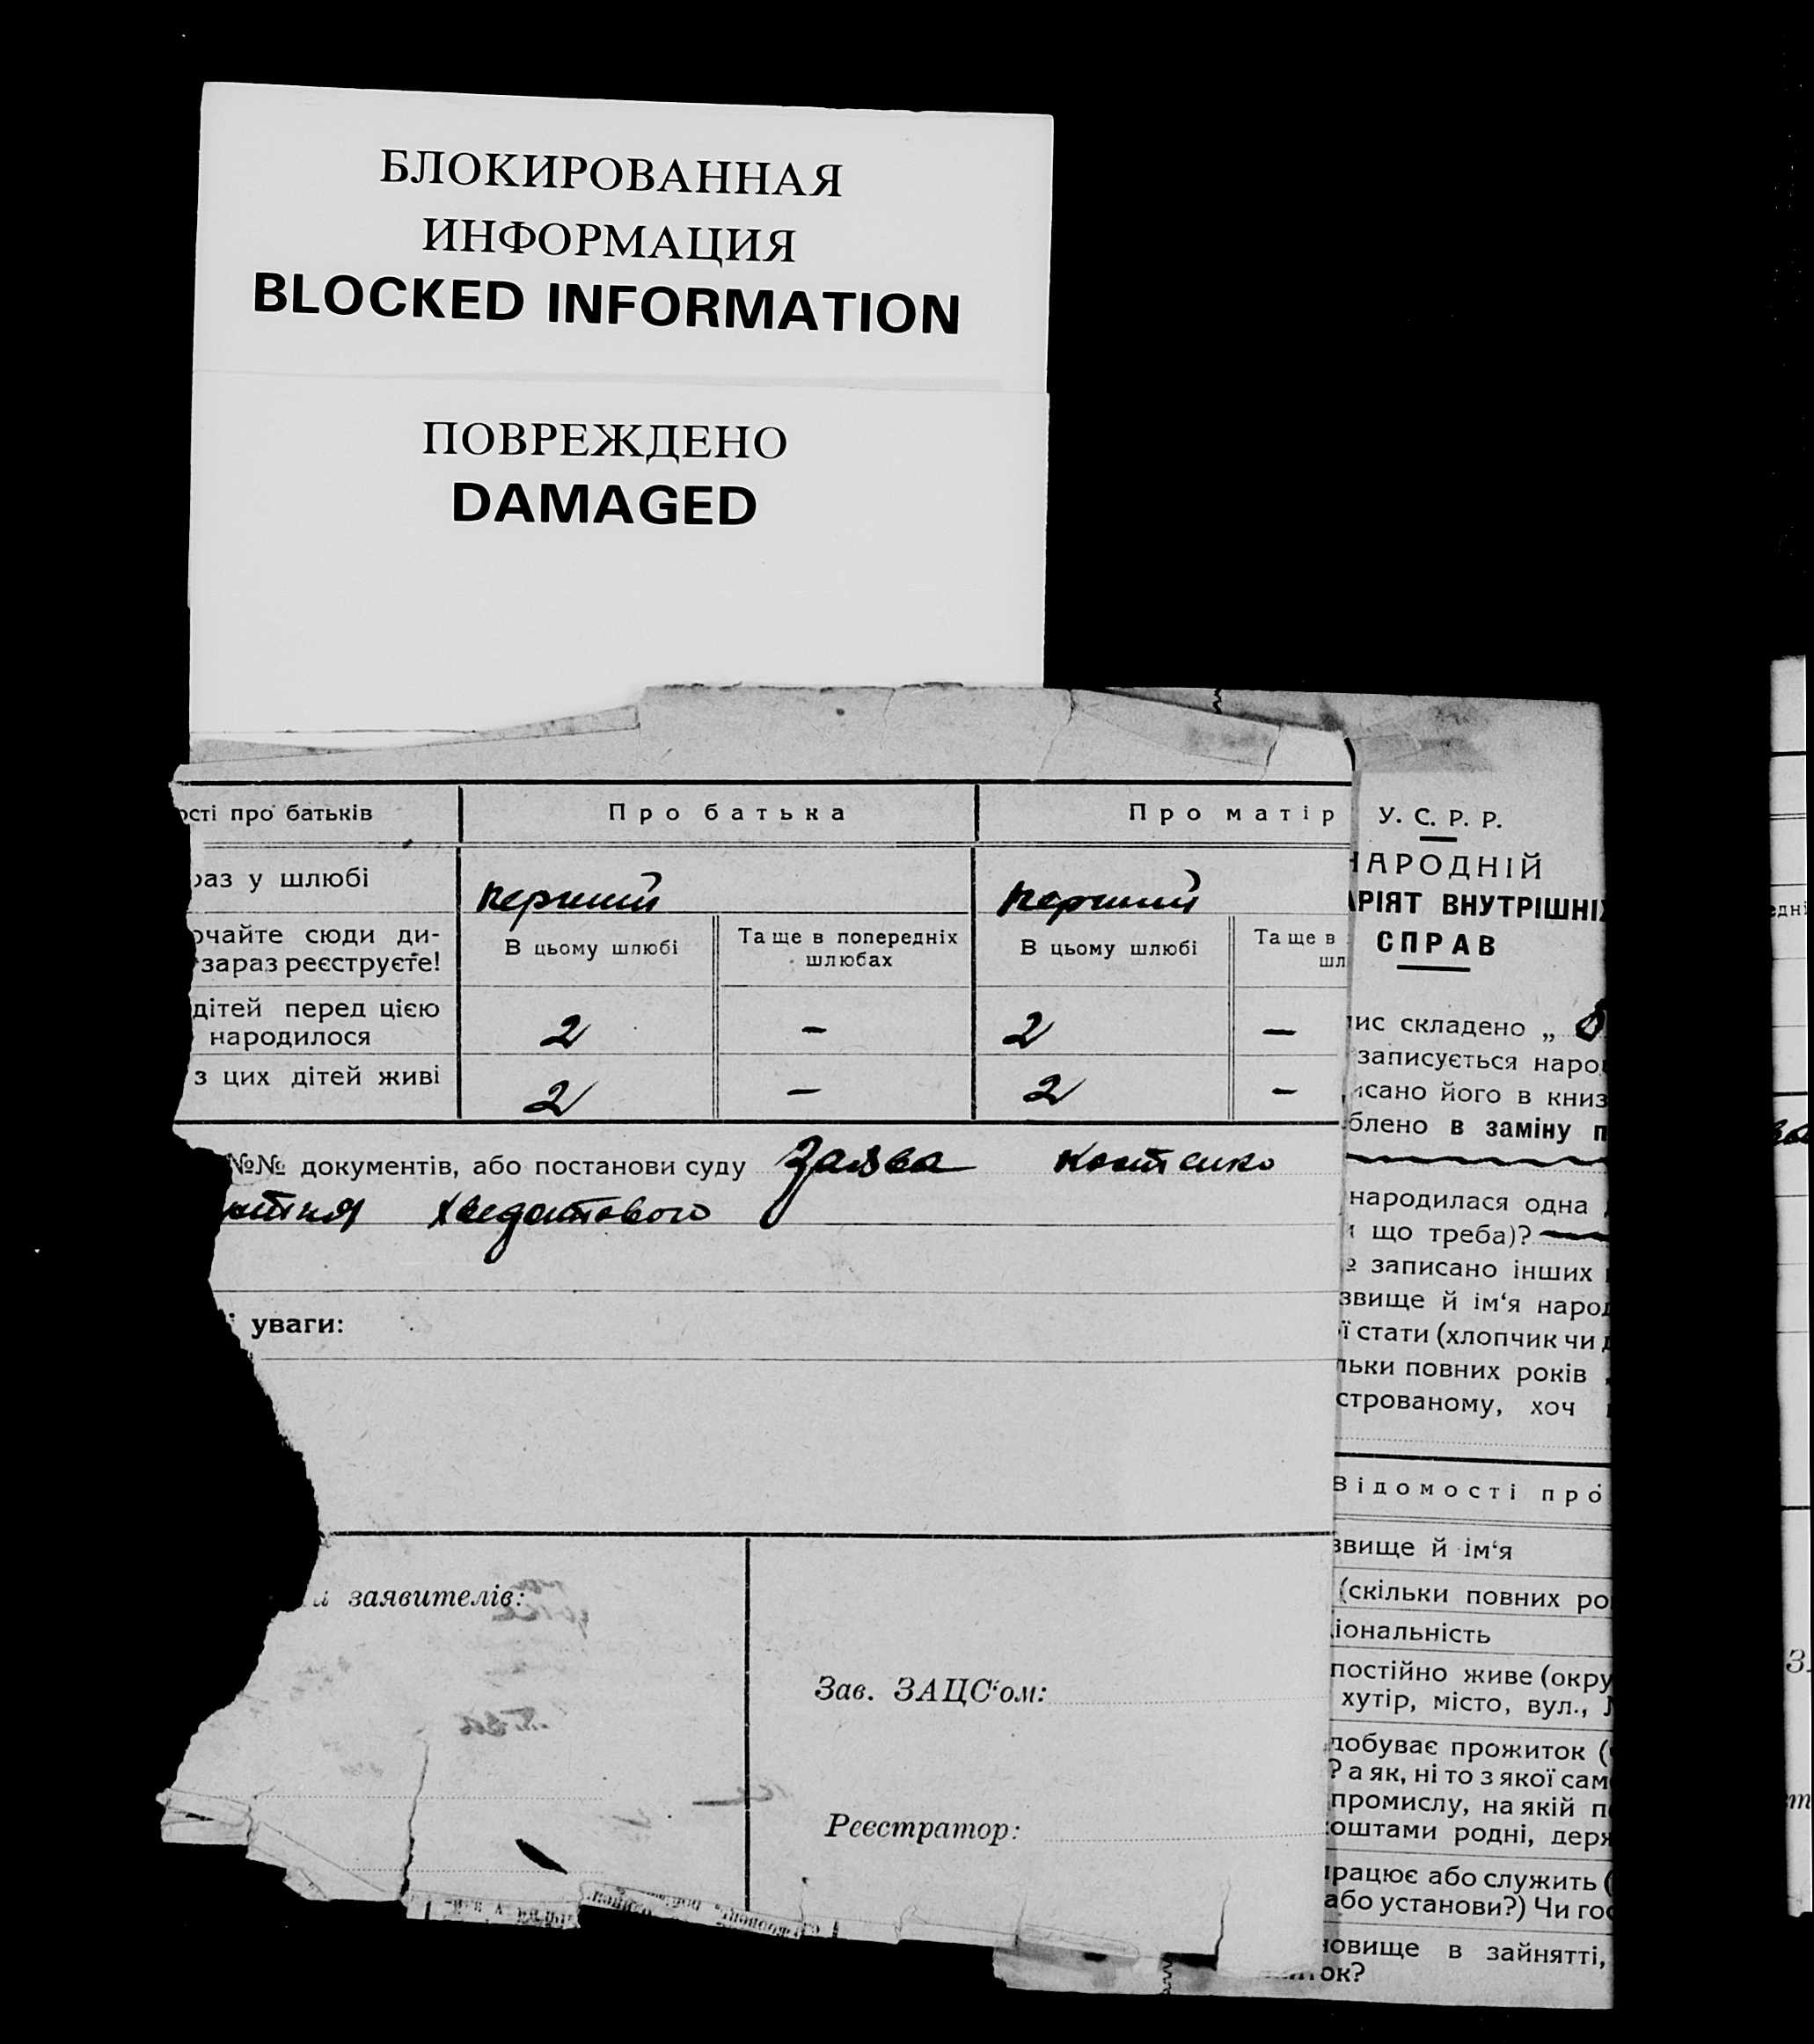 БЛОКИРОВАННАЯ
ИНФОРМАЦИЯ
BLOCKED INFORMATION
ПОВРЕЖДЕНО
DAMAGED
ості про батьків
Про батька
Про матір
раз у шлюбі
перший
перший
очайте сюди ди-
зараз реєструєте!
В цьому шлюбі
Та ще в попередніх
шлюбах
В цьому шлюбі
Та ще в
шл
дітей перед цією
народилося
2
–
2
–
з цих дітей живі
2
–
2
–
№№ документів, або постанови суду Заява Костенко
уваги:
заявителів:
Зав. ЗАЦС‘ом:
Реєстратор:
У. С. Р. Р.
НАРОДНІЙ
АРІЯТ ВНУТРІШНІХ
СПРАВ
пис складено „
записується наро
исано його в книз
блено в заміну п
народилася одна
що треба)?
№ записано інших
звище й ім‘я народ
ї стати (хлопчик чи д
льки повних років
строваному, хоч
Відомості про
звище й ім‘я
(скільки повних ро
іональність
постійно живе (окру
хутір, місто, вул.,
добуває прожиток (
? а як, ні то з якої сам
промислу, на якій п
оштами родні, держ
працює або служить (
або установи?) Чи гос
новище в зайнятті,
ок?